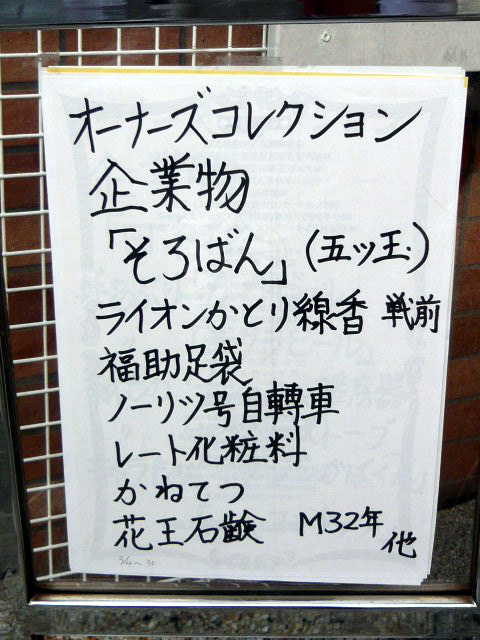 オーナーズコレクション
企業物
「そろばん」(五ツ玉.)
ライオンかとり線香 戦前
福助足袋
ノーリツ号自轉車
レート化粧料
かねてつ
花王石鹸 M32年
他
3/4〜30